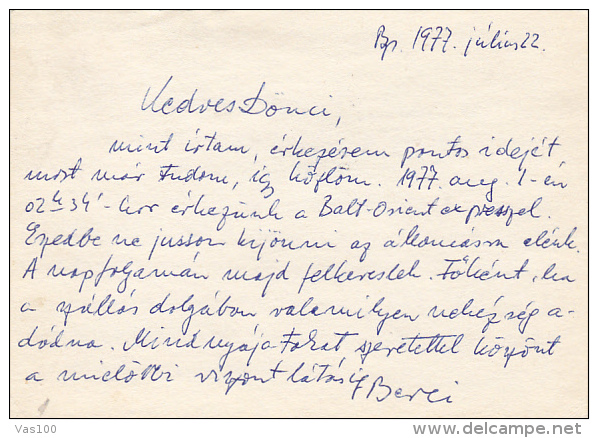 Bp. 1977. július 22.
Kedves Dönci,
mint írtam, érkezésem pontos idejét
most már tudom, így közlöm. 1977. aug. 1-én
02 h 34'-kor érkezünk a Balt-Orient expresszel.
Eszedbe ne jusson kijönni az állomásra elénk.
A nap folyamán majd felkereslek. Főként, ha
a szállás dolgában valamilyen nehézség a-
dódna. Mindnyájatokat szeretettel köszönt
a mielőbbi viszontlátásig Berci
1
Vas100
delcampe.net